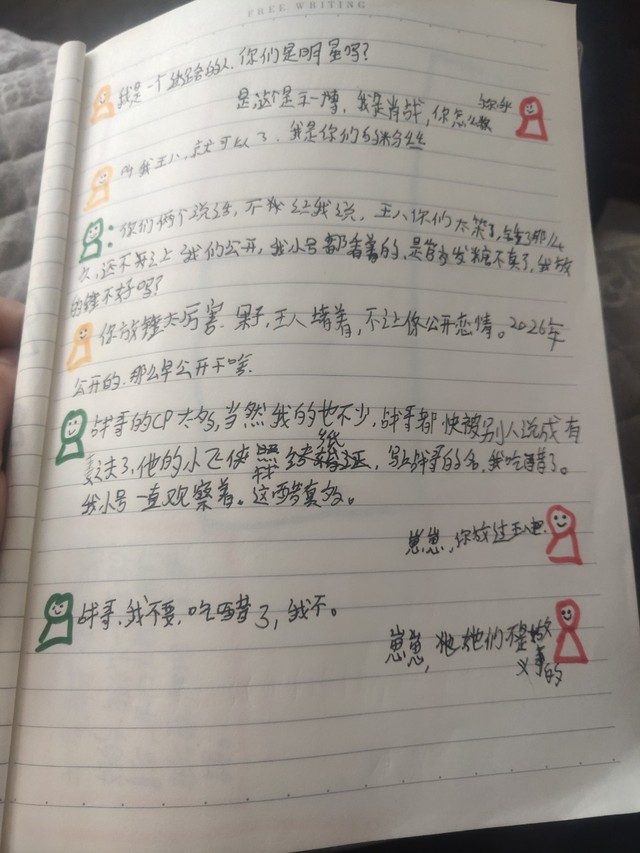 FREE WRITING
我是一个迷路的人.你们是明星吗?
是这个是王一博,我是肖战,你怎么
啊.我王八.就可以了.我是你们的粉丝
:你们俩个说话,不说让我说,王八你们太笨了,锤了那么
久,还不算上我们公开,我小号都看着的,是官方发糖不真了,我放
的锤不好吗?
你放锤太厉害.果子,王八堵着,不让你公开恋情。2026年
公开的.那么早公开干啥.
战哥的CP太多,当然我的也不少,战哥都快被别人说成有
妻夫了,他的小飞侠照 纸 证,写上战哥的名,我吃醋了。
我小号一直观察着。这醋真多。
崽崽,你放过王八吧.
战哥,我不要,吃醋了,我不。
崽崽,她们不是故
义事的